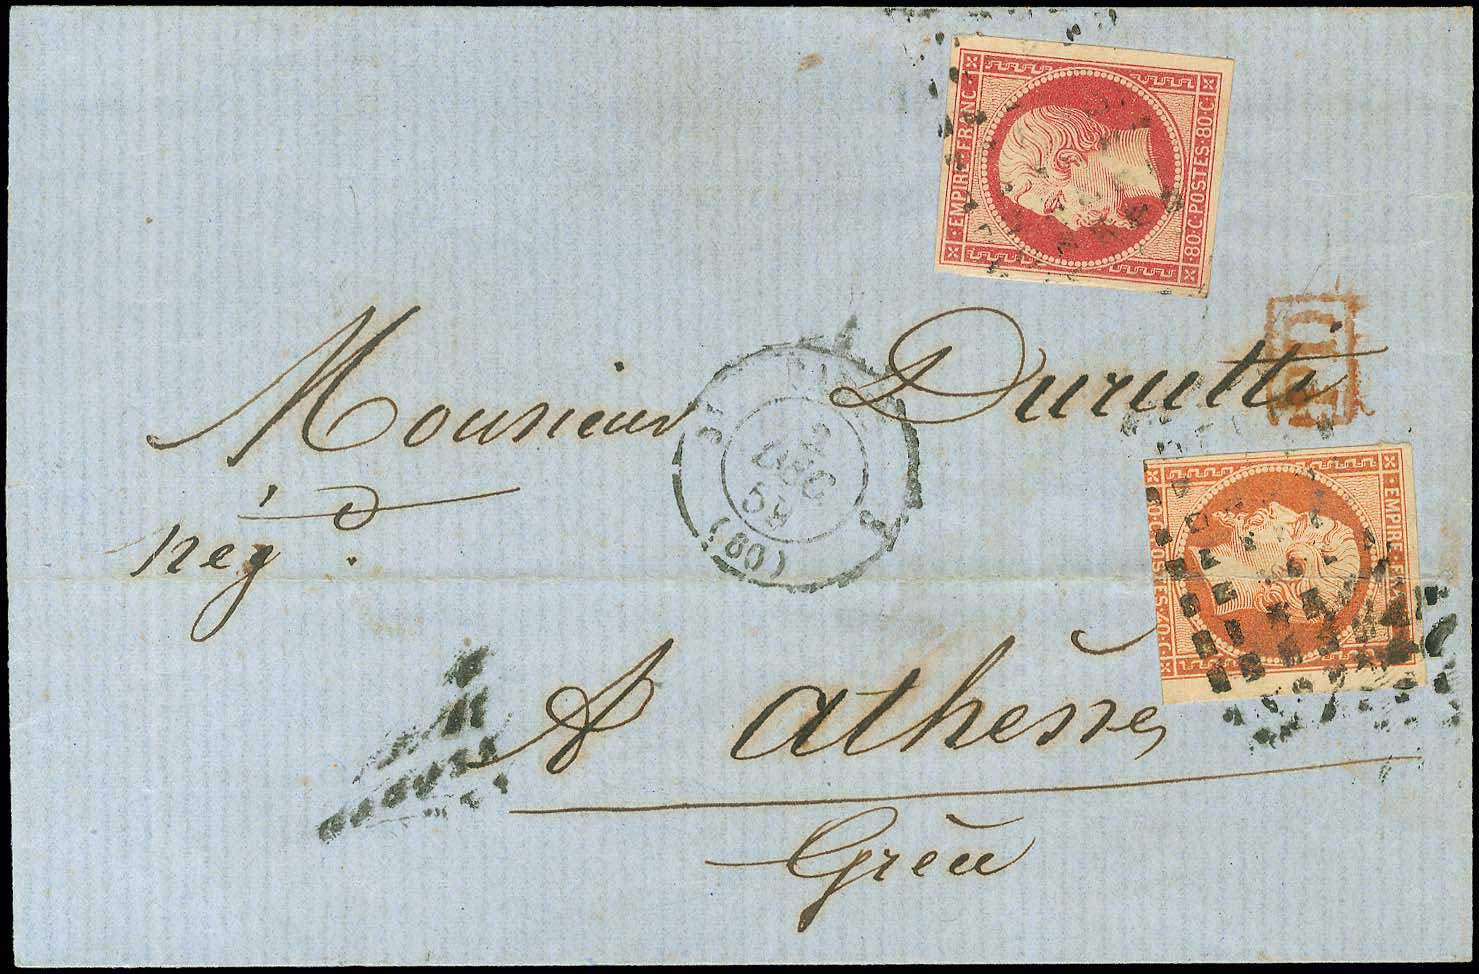 EMPIRE FRANC
80·C·POSTES·80·C
PD
Monsieur Durutti
nég.
2
DEC
(60)
EMPIRE F
POSTES·40·C
A athènes
Grèce